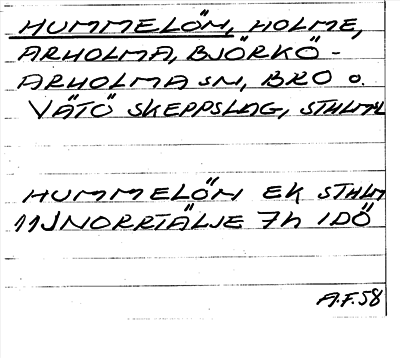 HUMMELÖN, HOLME,
ARHOLMA, BJÖRKÖ-
ARHOLMA SN, BRO O.
VÄTÖ SKEPPSLAG, STHLM L
HUMMELÖN EK STHLM
11J NORRTÄLJE 7h IDÖ
A.F. 58